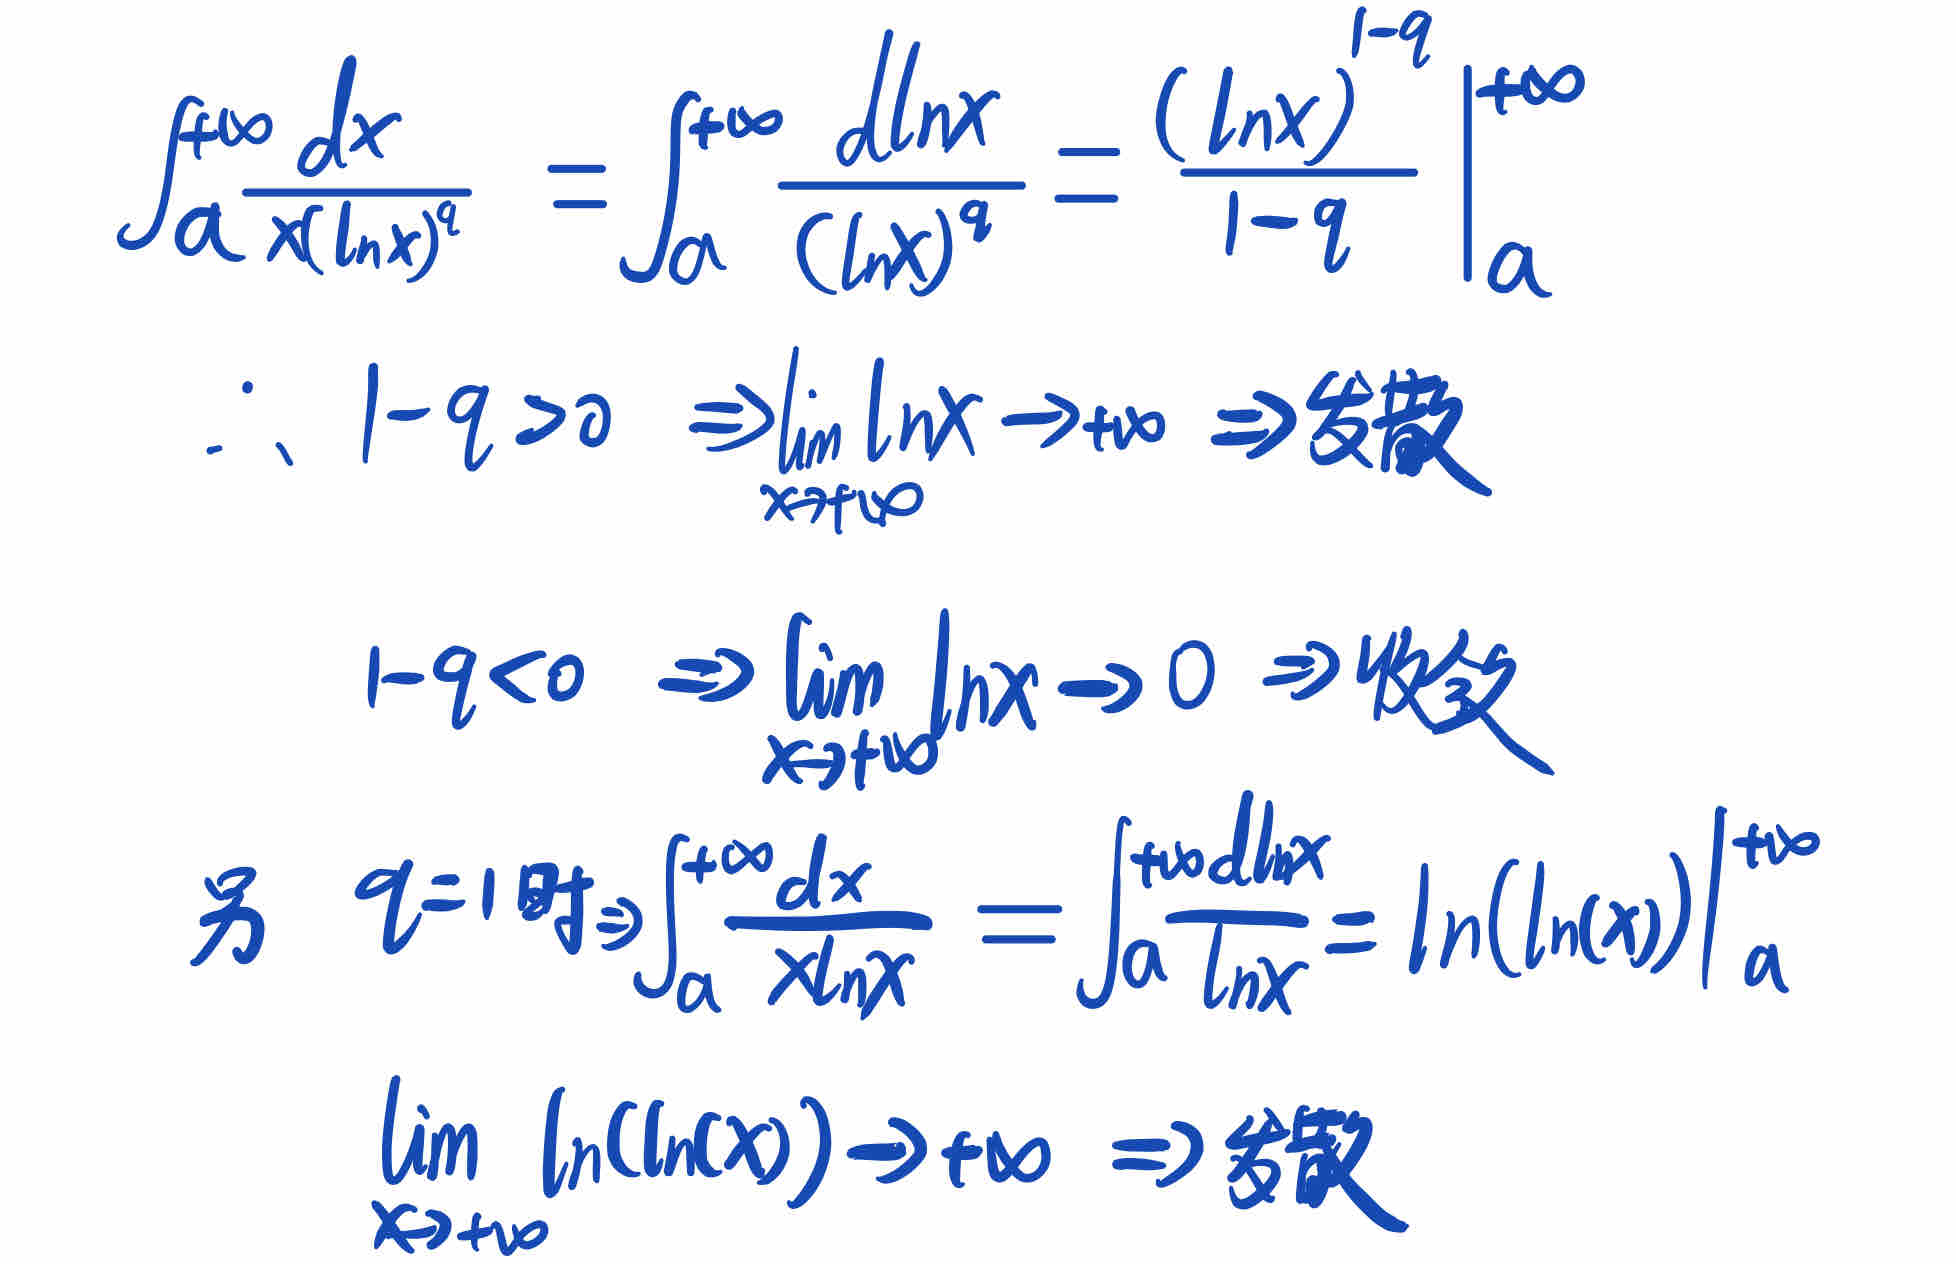 ∫_a^{+∞} dx/(x(lnx)^q) = ∫_a^{+∞} dlnx/(lnx)^q = (lnx)^{1-q}/(1-q) |_a^{+∞}
∴ 1-q>0 ⇒ lim_{x→+∞} lnx → +∞ ⇒ 发散
1-q<0 ⇒ lim_{x→+∞} lnx → 0 ⇒ 收敛
另 q=1时 ⇒ ∫_a^{+∞} dx/(xlnx) = ∫_a^{+∞} dlnx/lnx = ln(ln(x)) |_a^{+∞}
lim_{x→+∞} ln(ln(x)) → +∞ ⇒ 发散